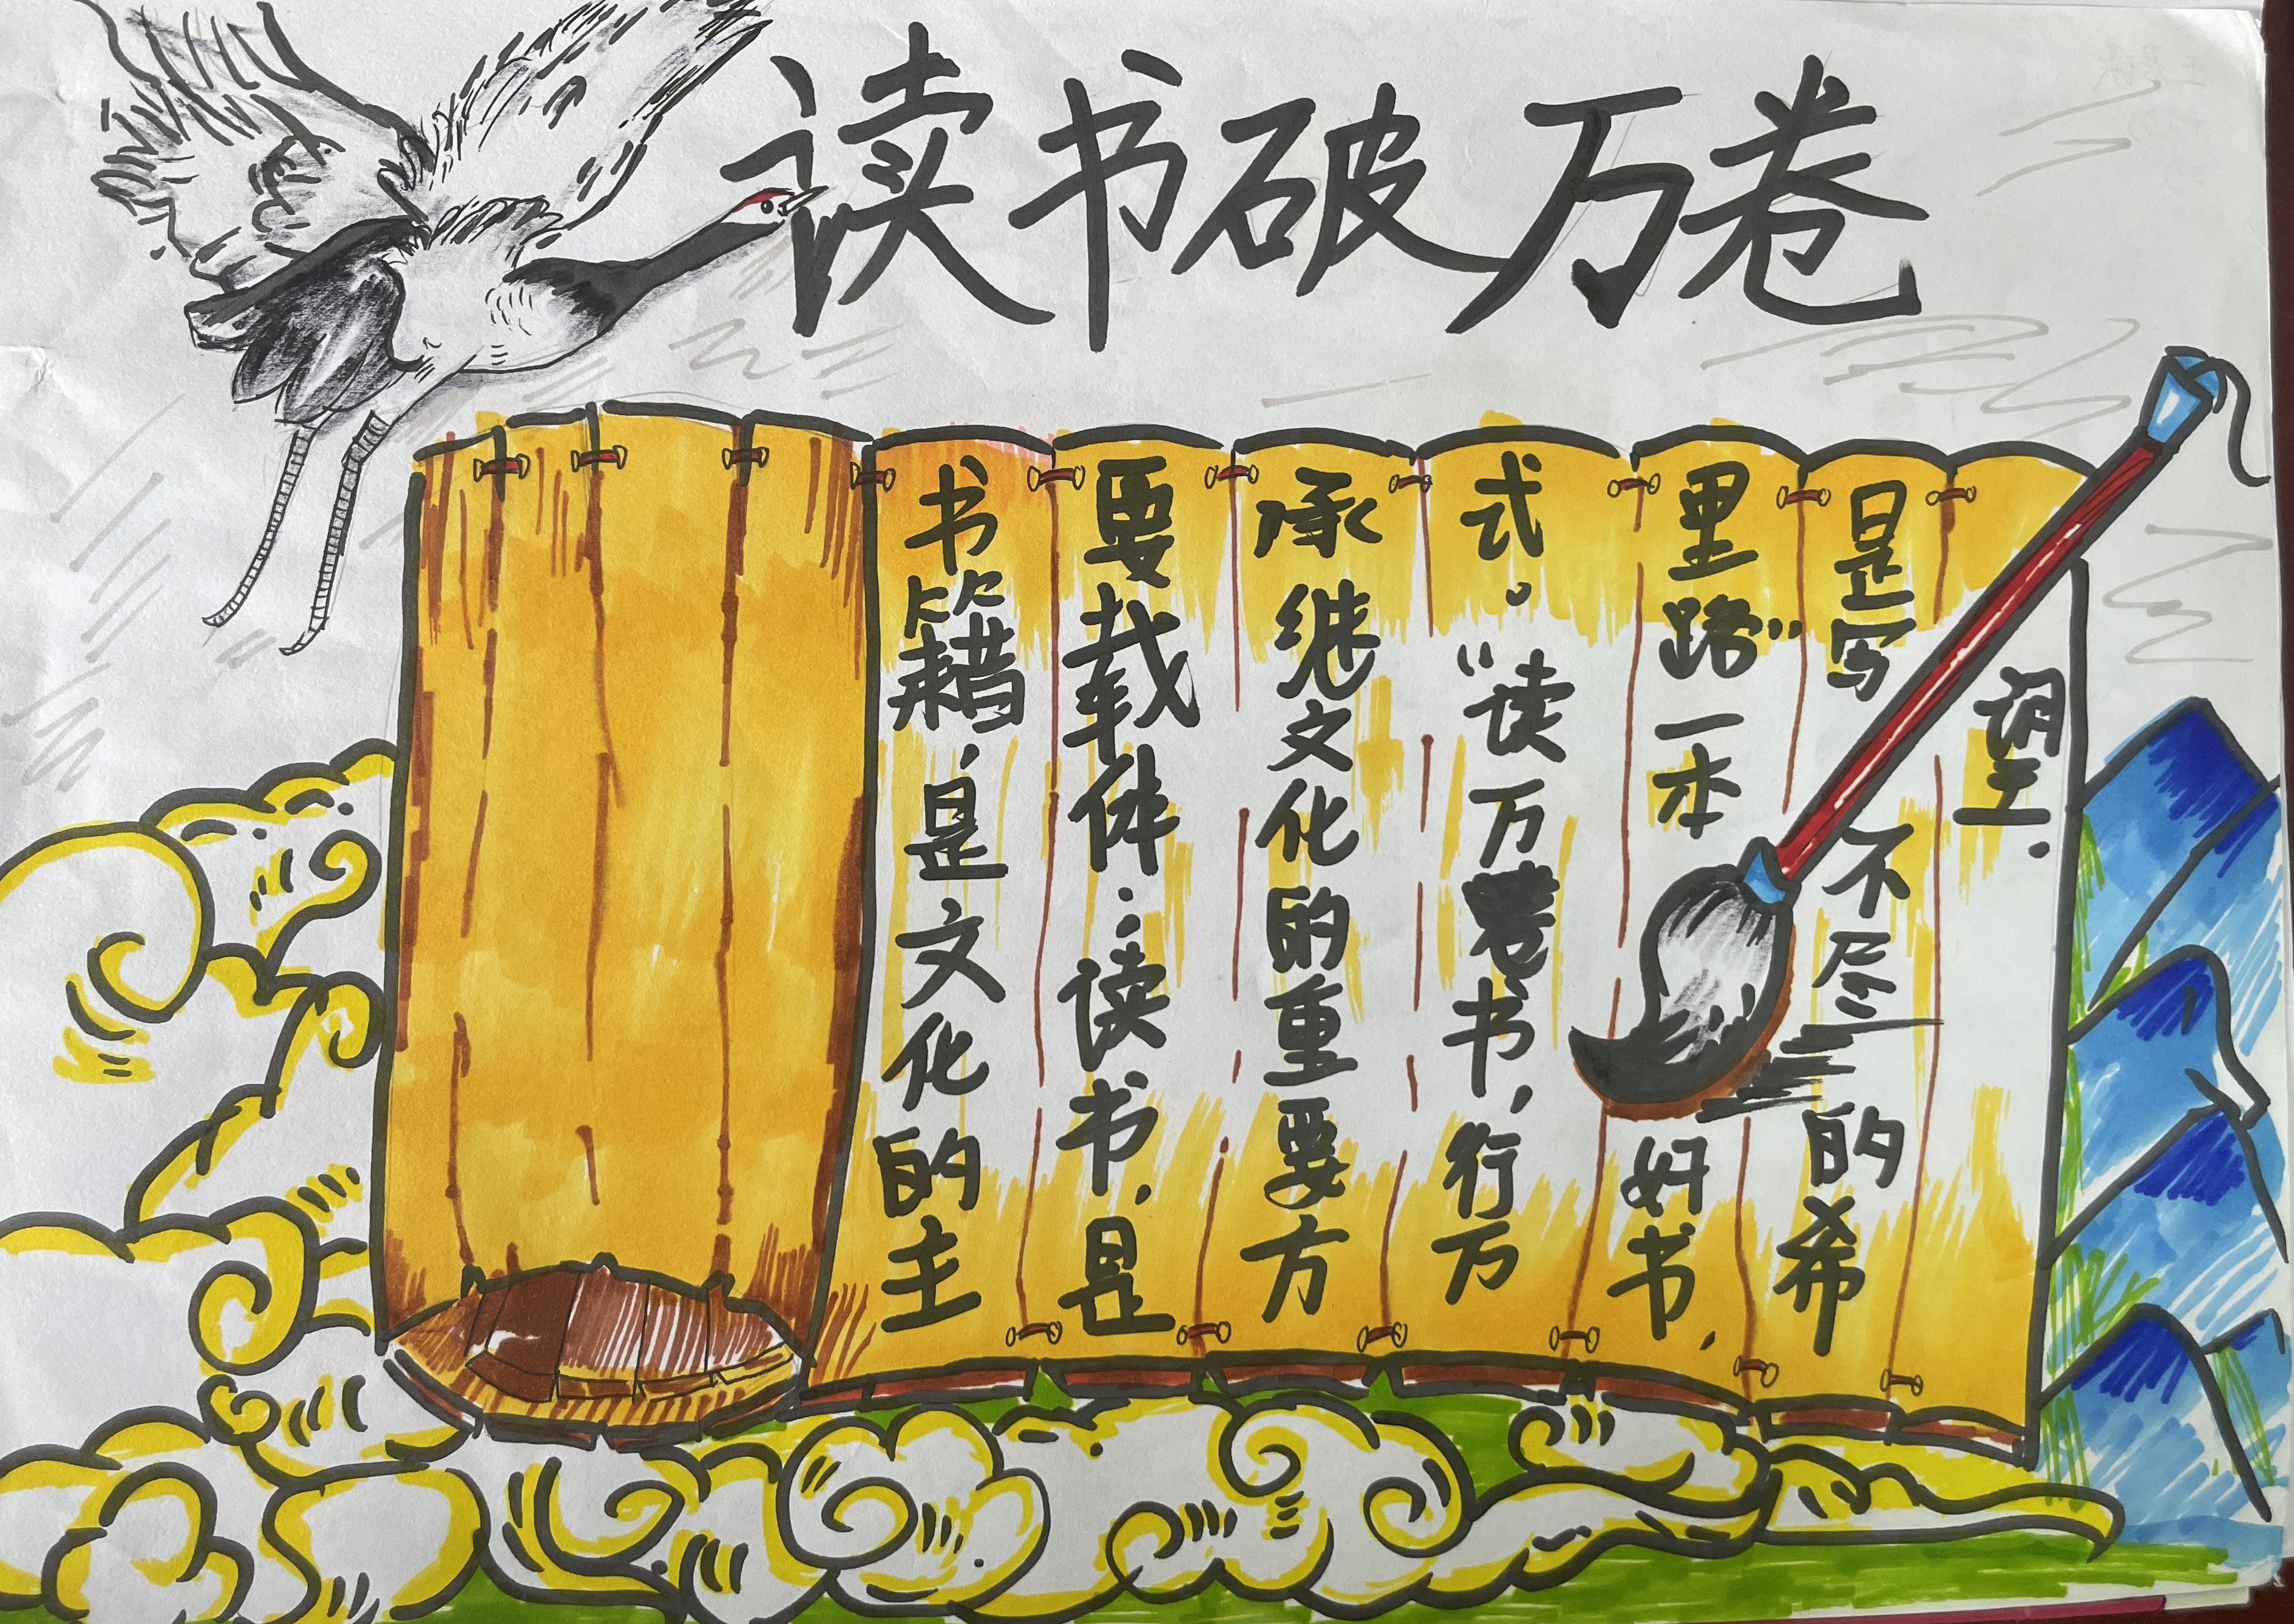 读书破万卷
书籍，是文化的主
要载体；读书，是
承继文化的重要方
式。“读万卷书，行万
里路”一本好书，
是写不尽的希
望.